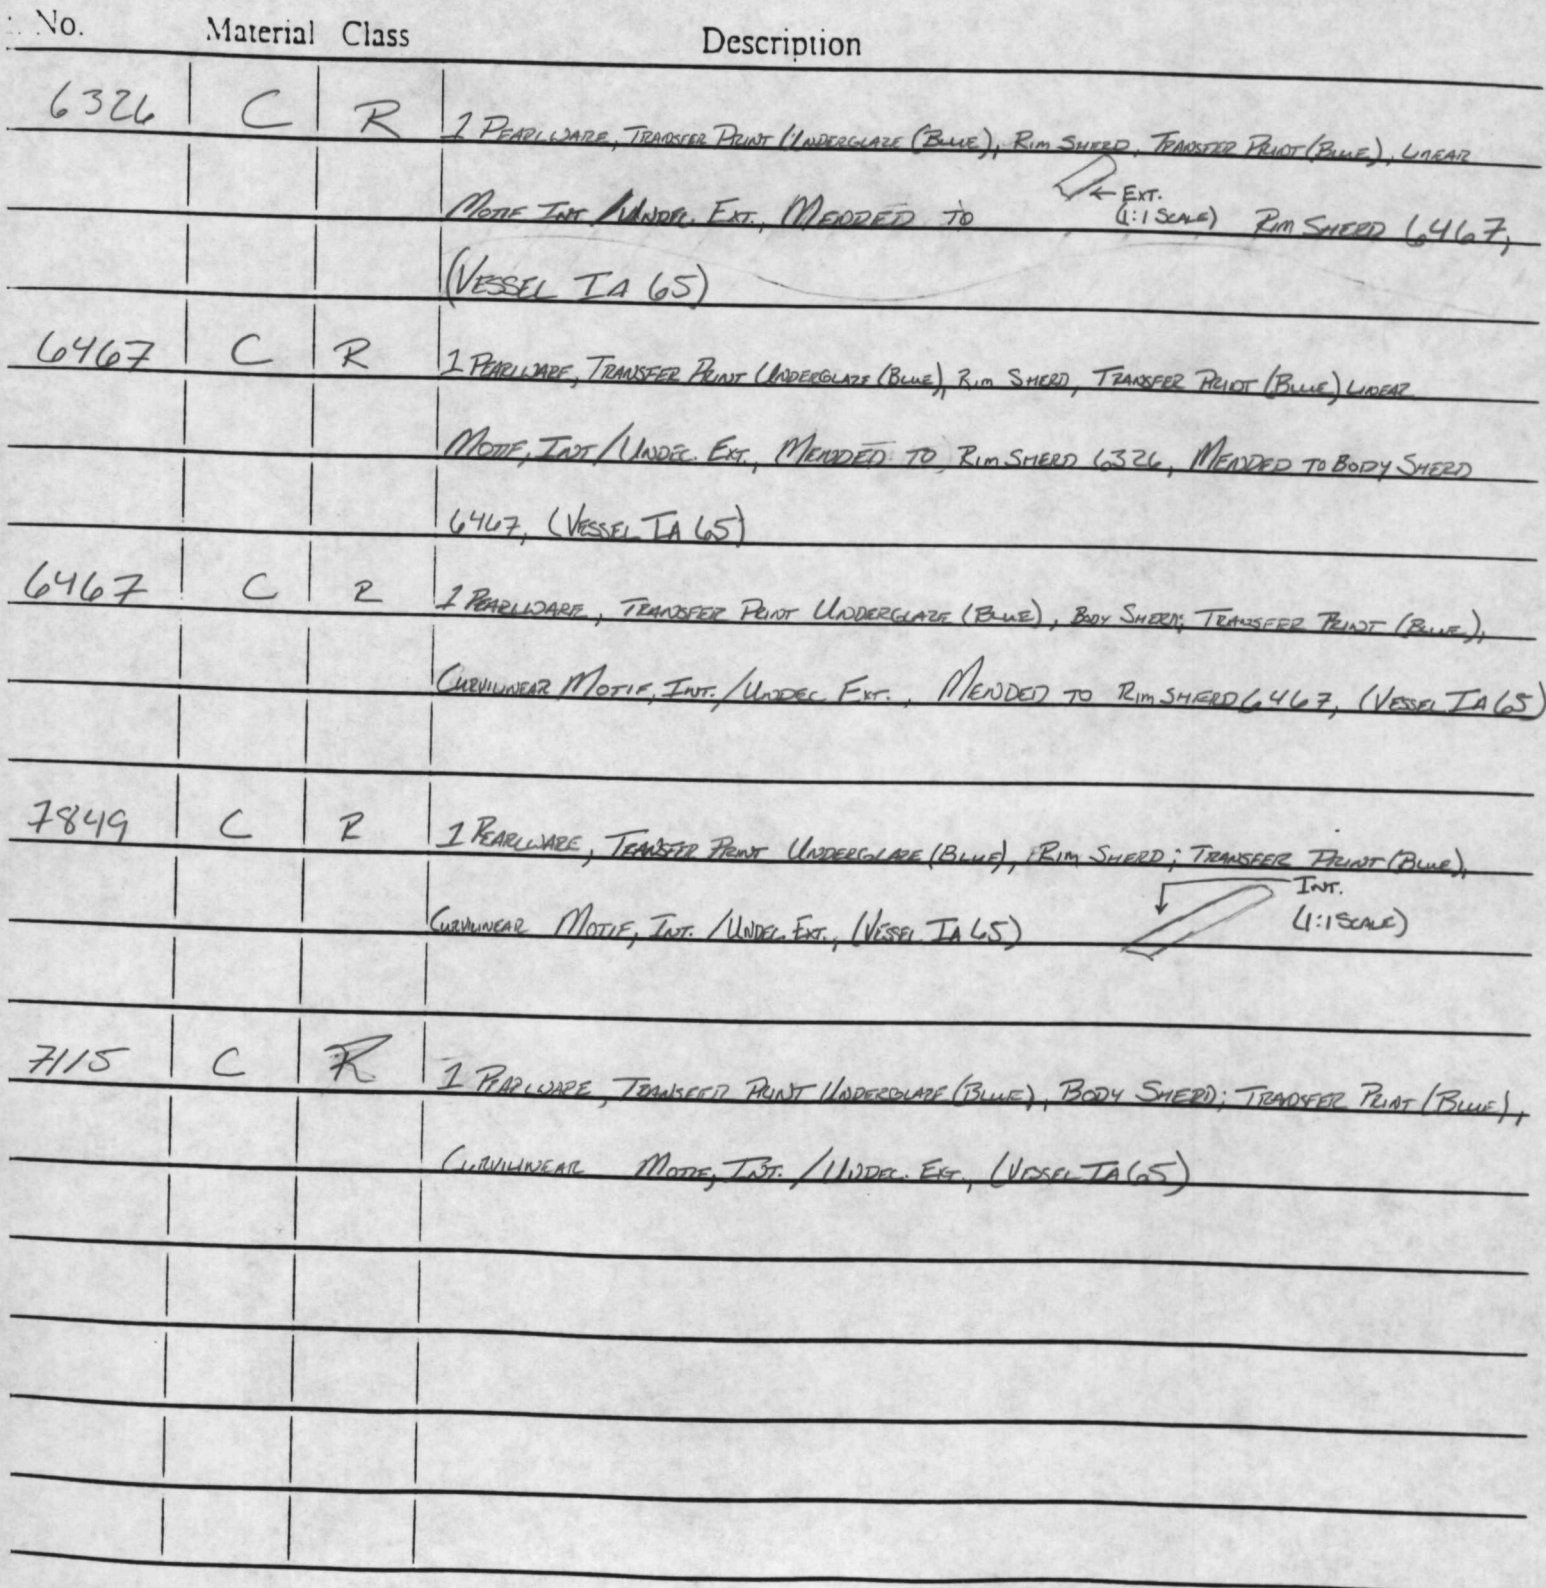 No. Material Class Description
6326 C R 1 PEARLWARE, TRANSFER PRINT UNDERGLAZE (BLUE), RIM SHERD, TRANSFER PRINT (BLUE), LINEAR
MOTIF INT / UNDEC. EXT., MENDED TO ← EXT. (1:1 SCALE) RIM SHERD 6467,
(VESSEL IA 65)
6467 C R 1 PEARLWARE, TRANSFER PRINT UNDERGLAZE (BLUE), RIM SHERD, TRANSFER PRINT (BLUE) LINEAR
MOTIF, INT / UNDEC. EXT., MENDED TO RIM SHERD 6326, MENDED TO BODY SHERD
6467, (VESSEL IA 65)
6467 C R 1 PEARLWARE, TRANSFER PRINT UNDERGLAZE (BLUE), BODY SHERD; TRANSFER PRINT (BLUE),
CURVILINEAR MOTIF, INT. / UNDEC. EXT., MENDED TO RIM SHERD 6467, (VESSEL IA 65)
7849 C R 1 PEARLWARE, TRANSFER PRINT UNDERGLAZE (BLUE), RIM SHERD; TRANSFER PRINT (BLUE),
CURVILINEAR MOTIF, INT. / UNDEC. EXT., (VESSEL IA 65) INT. (1:1 SCALE)
7115 C R 1 PEARLWARE, TRANSFER PRINT UNDERGLAZE (BLUE), BODY SHERD; TRANSFER PRINT (BLUE),
CURVILINEAR MOTIF, INT. / UNDEC. EXT., (VESSEL IA 65)